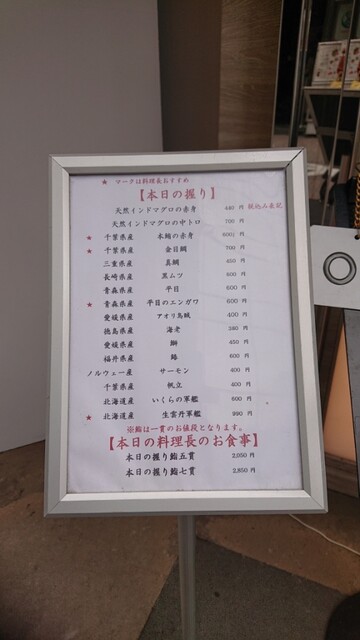 ★ マークは料理長おすすめ
【本日の握り】
天然インドマグロの赤身 440 円 税込み表記
天然インドマグロの中トロ 700 円
★ 千葉県産 本鮪の赤身 600 円
★ 千葉県産 金目鯛 700 円
三重県産 真鯛 450 円
長崎県産 黒ムツ 600 円
青森県産 平目 600 円
★ 青森県産 平目のエンガワ 600 円
愛媛県産 アオリ烏賊 400 円
徳島県産 海老 380 円
愛媛県産 鰤 450 円
福井県産 600 円
ノルウェー産 サーモン 400 円
千葉県産 帆立 400 円
北海道産 いくらの軍艦 600 円
★ 北海道産 生雲丹軍艦 990 円
※鮨は一貫のお値段となります。
【本日の料理長のお食事】
本日の握り鮨五貫 2,050 円
本日の握り鮨七貫 2,850 円